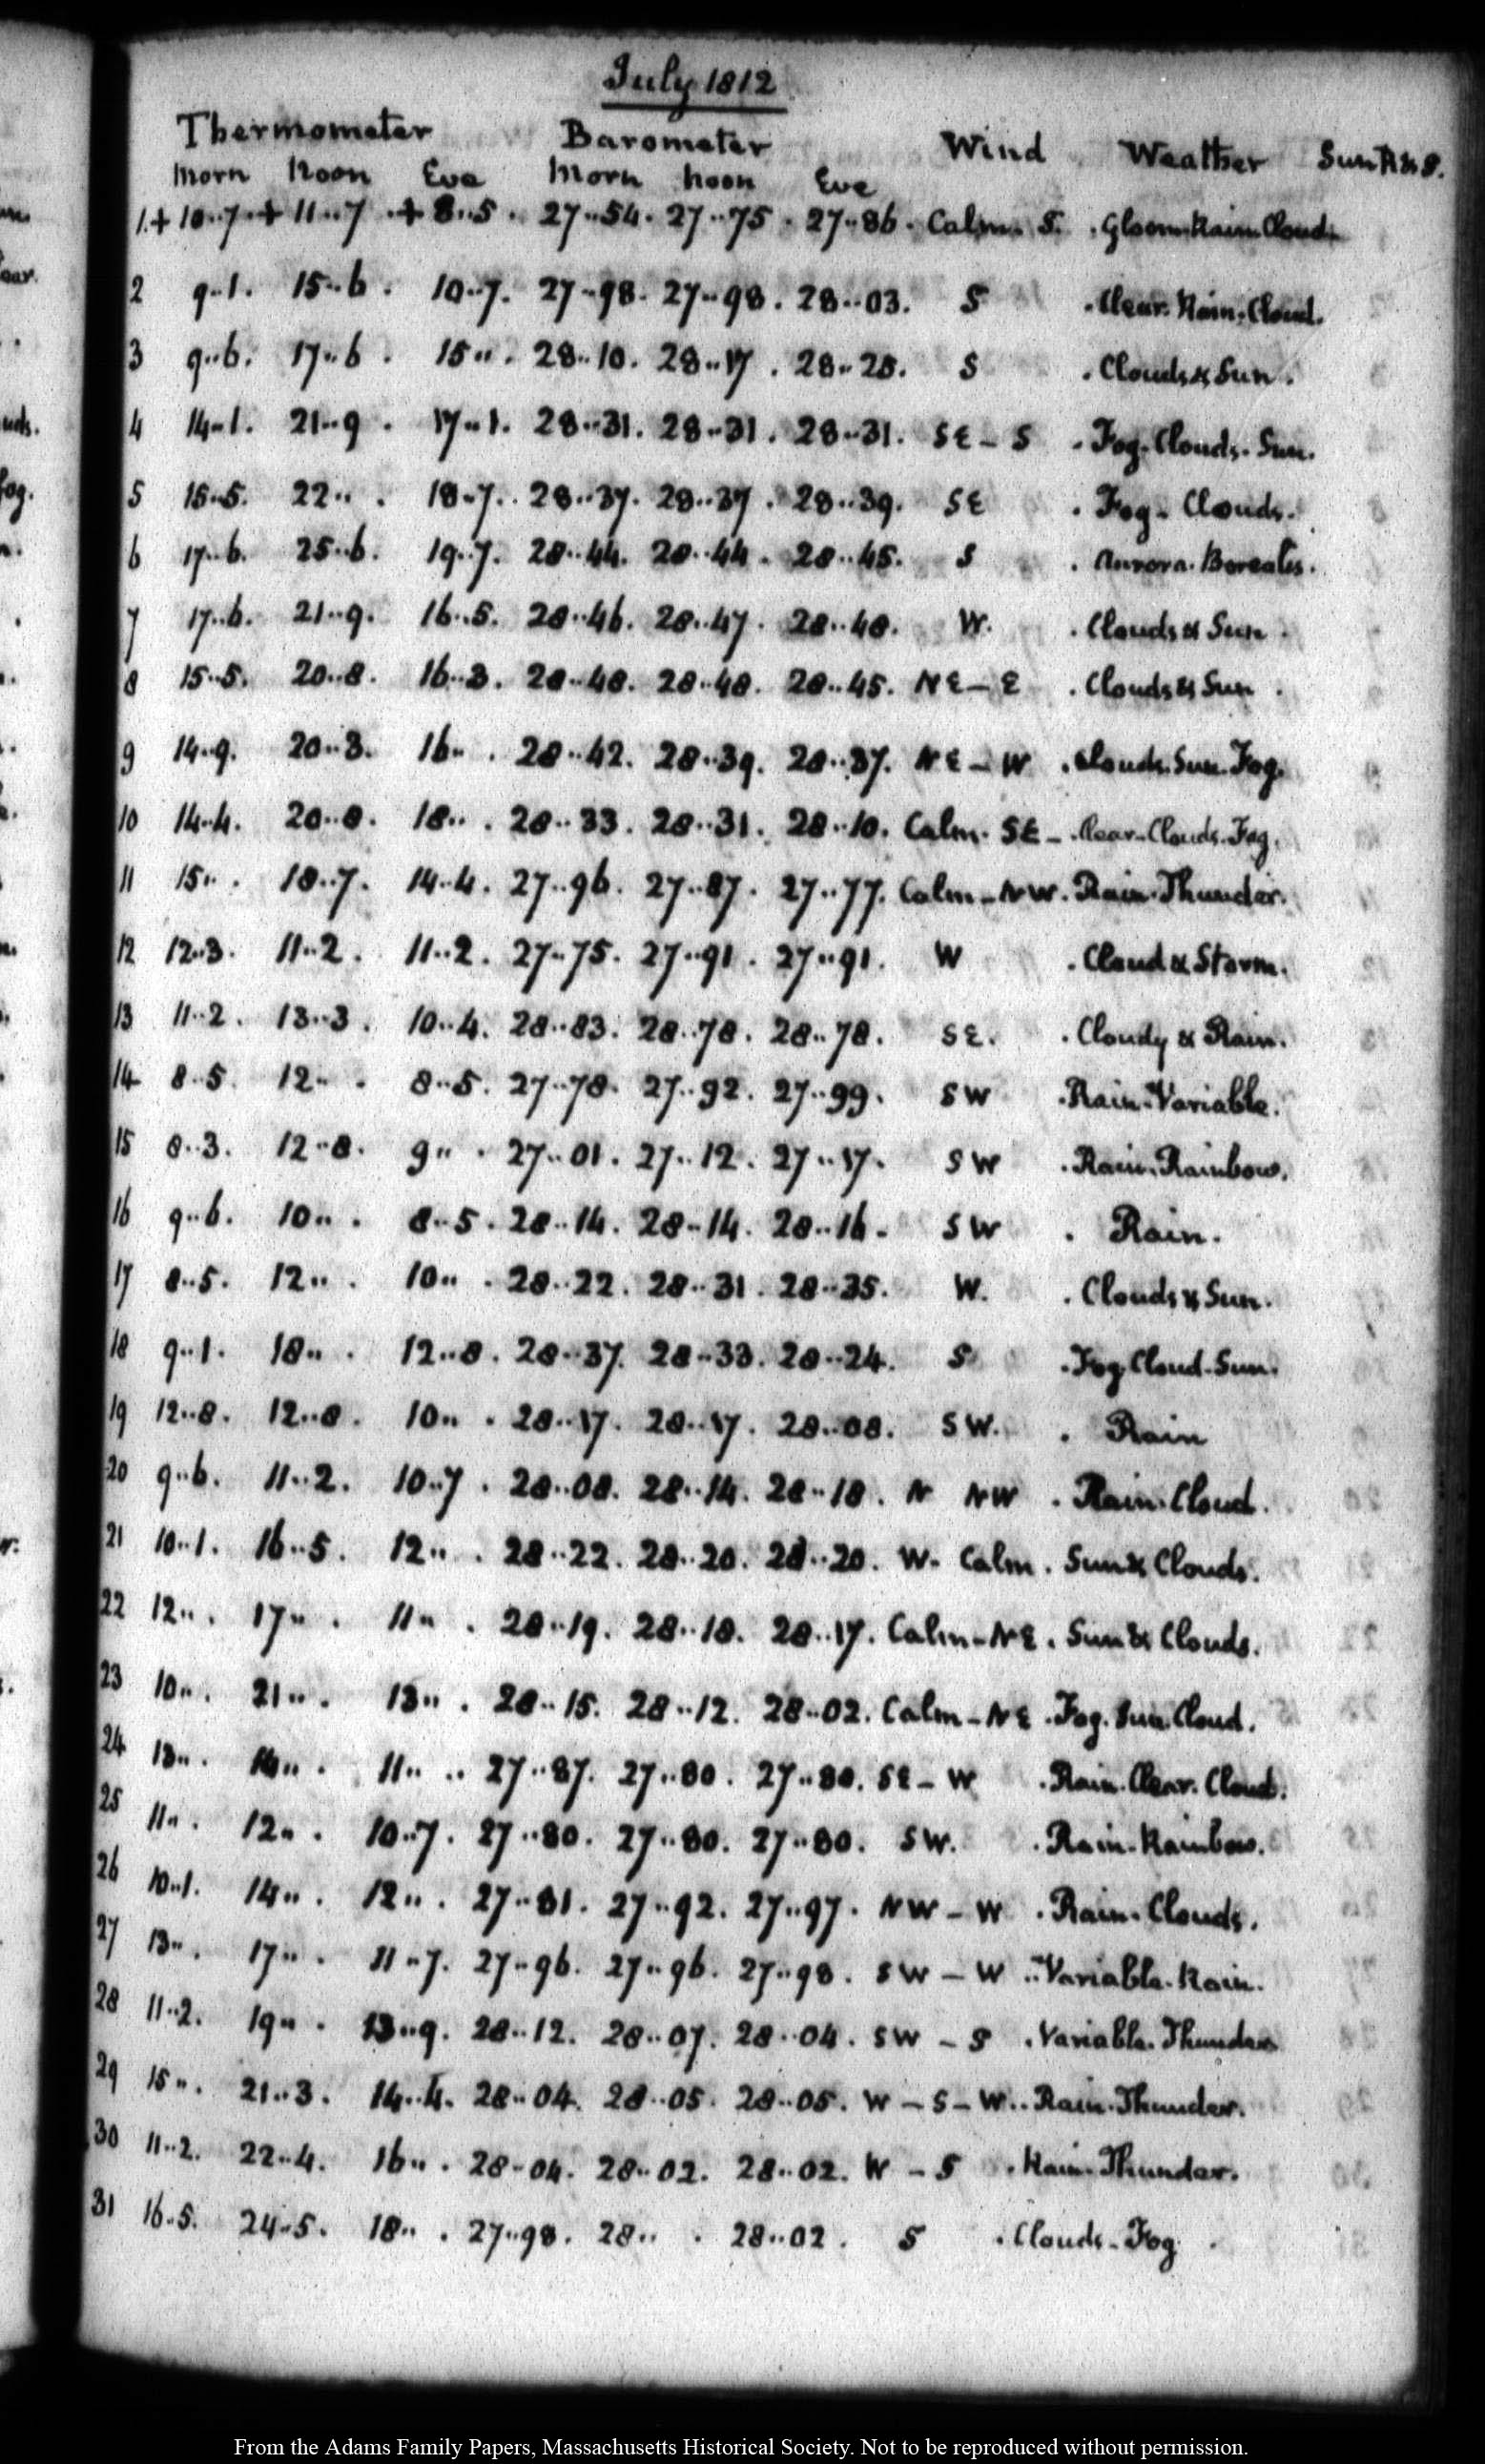 July 1812
Thermometer Barometer Wind Weather Sun R & S.
Morn Noon Eve Morn Noon Eve
1. + 10..7 + 11..7 . + 8..5 . 27..54. 27..75 . 27..86. Calm. S. . Gloom. Rain. Cloud.
2 9..1. 15..6 . 10..7. 27..98. 27..98. 28..03. S . Clear. Rain. Cloud.
3 9..6. 17..6 . 15.. . 28..10. 28..17 . 28..28. S . Clouds & Sun.
4 14..1. 21..9 . 17..1. 28..31. 28..31. 28..31. SE - S . Fog. Clouds. Sun.
5 15..5. 22.. . 18..7. 28..37. 28..37 . 28..39. SE . Fog - Clouds.
6 17..6. 25..6. 19..7. 28..44. 28..44 . 28..45. S . Aurora. Borealis.
7 17..6. 21..9. 16..5. 28..46. 28..47 . 28..48. W. . Clouds & Sun .
8 15..5. 20..8. 16..3. 28..48. 28..48. 28..45. NE - E . Clouds & Sun .
9 14..9. 20..3. 16.. . 28..42. 28..39. 28..37. NE - W . Clouds. Sun. Fog.
10 14..4. 20..8. 18.. . 28..33. 28..31. 28..10. Calm. SE - . Clear - Clouds. Fog.
11 15.. . 18..7. 14..4. 27..96. 27..87. 27..77. Calm - NW. Rain. Thunder.
12 12..3. 11..2. 11..2. 27..75. 27..91 . 27..91. W . Cloud & Storm.
13 11..2. 13..3. 10..4. 28..83. 28..78. 28..78. SE. . Cloudy & Rain.
14 8..5. 12.. . 8..5. 27..78. 27..92. 27..99. SW . Rain. Variable.
15 8..3. 12..8. 9.. . 27..01. 27..12. 27..17. SW . Rain. Rainbow.
16 9..6. 10.. . 8..5 . 28..14. 28..14. 28..16. SW . Rain.
17 8..5. 12.. . 10.. . 28..22. 28..31. 28..35. W. . Clouds & Sun.
18 9..1. 18.. . 12..8. 28..37. 28..33. 28..24. S . Fog. Cloud. Sun.
19 12..8. 12..8. 10.. . 28..17. 28..17. 28..08. SW. . Rain
20 9..6. 11..2. 10..7 . 28..08. 28..14. 28..18. N NW . Rain. Cloud.
21 10..1. 16..5. 12.. . 28..22. 28..20. 28..20. W. Calm . Sun & Clouds.
22 12.. . 17.. . 11.. . 28..19. 28..18. 28..17. Calm - NE . Sun & Clouds.
23 10.. . 21.. . 13.. . 28..15. 28..12. 28..02. Calm - NE . Fog. Sun. Cloud.
24 13.. . 14.. . 11.. .. 27..87. 27..80. 27..80. SE - W . Rain. Clear. Cloud.
25 11.. . 12.. . 10..7. 27..80. 27..80. 27..80. SW. . Rain. Rainbow.
26 10..1. 14.. . 12.. . 27..81. 27..92. 27..97. NW - W . Rain. Clouds.
27 13.. . 17.. . 11..7. 27..96. 27..96. 27..98. SW - W . Variable. Rain.
28 11..2. 19.. . 13..9. 28..12. 28..07. 28..04. SW - S . Variable. Thunder
29 15.. . 21..3. 14..4. 28..04. 28..05. 28..05. W - S - W.. Rain. Thunder.
30 11..2. 22..4. 16.. . 28..04. 28..02. 28..02. W - S . Rain. Thunder.
31 16..5. 24..5. 18.. . 27..98. 28.. . 28..02. S . Clouds. Fog .
From the Adams Family Papers, Massachusetts Historical Society. Not to be reproduced without permission.